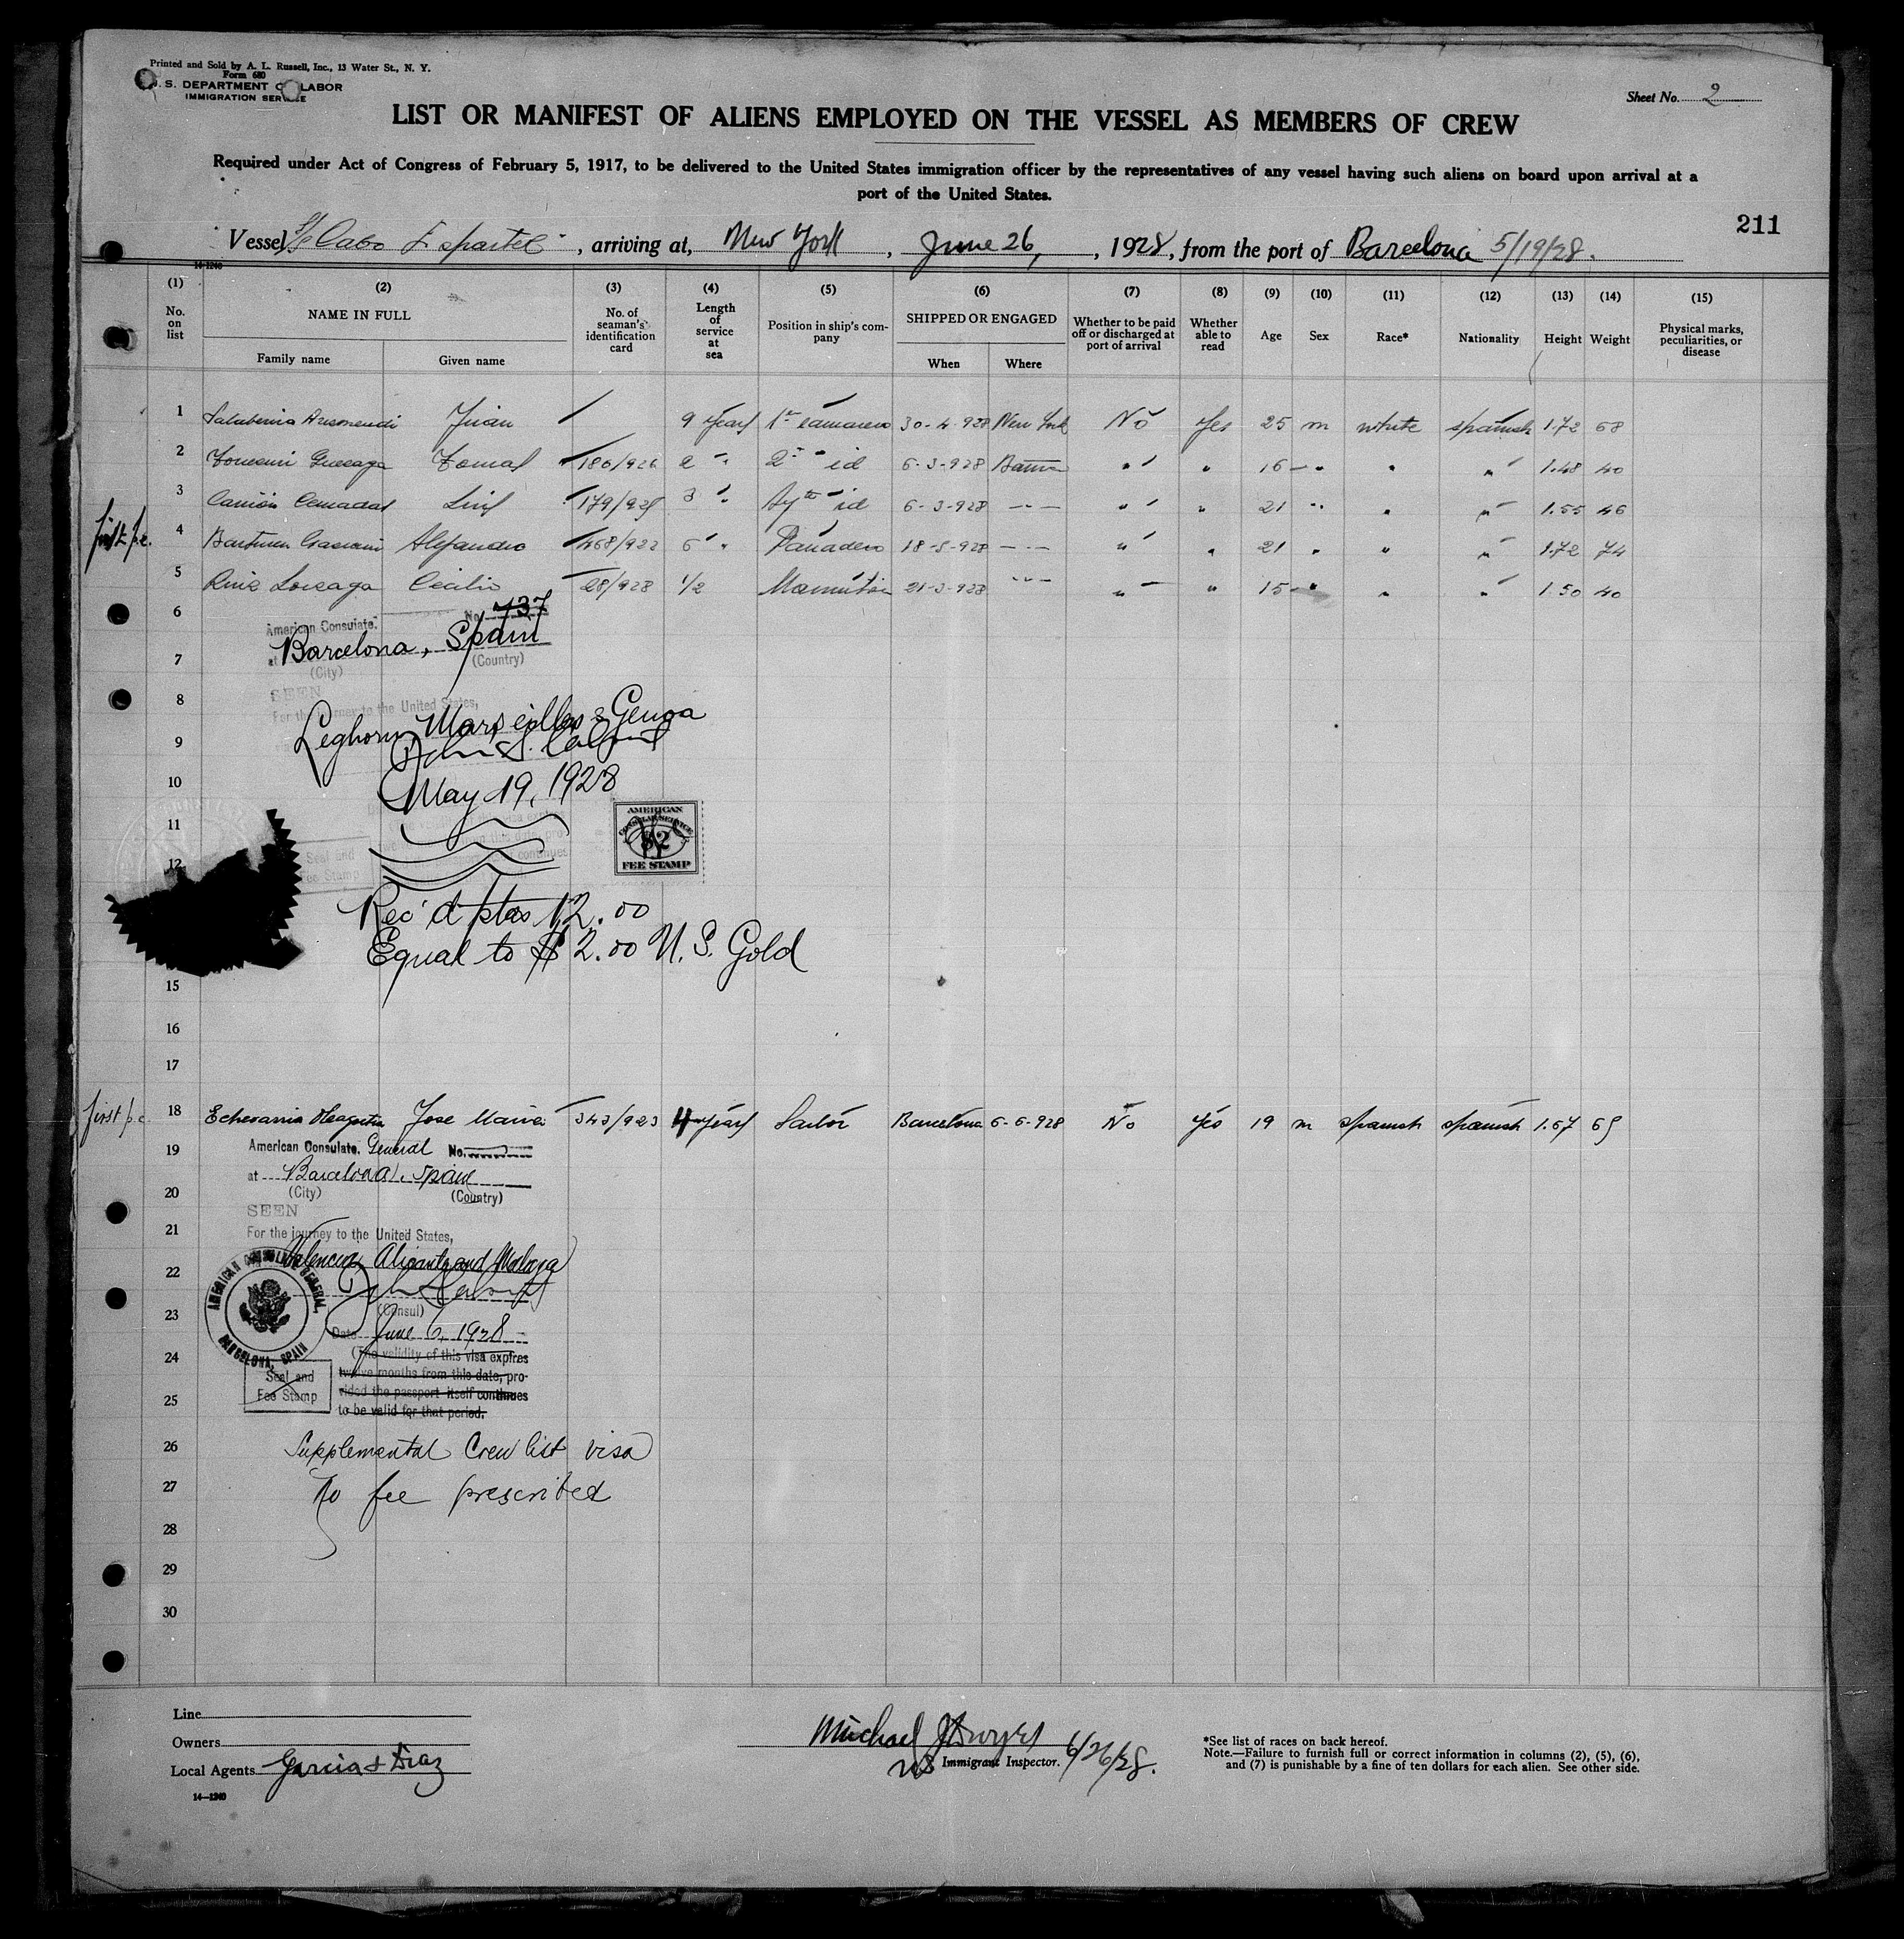 Printed and Sold by A. L. Russell, Inc., 13 Water St., N. Y.
Form 680
U. S. DEPARTMENT OF LABOR
IMMIGRATION SERVICE
Sheet No. 2
LIST OR MANIFEST OF ALIENS EMPLOYED ON THE VESSEL AS MEMBERS OF CREW
Required under Act of Congress of February 5, 1917, to be delivered to the United States immigration officer by the representatives of any vessel having such aliens on board upon arrival at a
port of the United States.
211
Vessel Cabo Espartel, arriving at, New York, June 26, 1928, from the port of Barcelona 5/19/28.
14-1240
(1) (2) (3) (4) (5) (6) (7) (8) (9) (10) (11) (12) (13) (14) (15)
No. on list NAME IN FULL Family name Given name No. of seaman's identification card Length of service at sea Position in ship's company SHIPPED OR ENGAGED When Where Whether to be paid off or discharged at port of arrival Whether able to read Age Sex Race* Nationality Height Weight Physical marks, peculiarities, or disease
1 Juan 9 years 1r camarero 30-4-928 New York No Yes 25 m white spanish 1.72 68
2 Tomas 186/926 2 " 2º id 6-3-928 " " 16 " " " 1.48 40
3 Luis 179/925 3 " Ayte id 6-3-928 " " " 21 " " " 1.55 46
first p.c. 4 Alejandro 468/922 6 " Panadero 18-5-928 " " " 21 " " " 1.72 74
5 Ruiz Cecilio 28/928 1/2 Marmiton 21-3-928 " " " 15 " " " 1.50 40
6
American Consulate. No. 737
7
at Barcelona, Spain
(City) (Country)
8
SEEN
For the journey to the United States,
Leghorn, Marseilles & Genoa
9
10
May 19, 1928
11
12
Seal and
Fee Stamp
AMERICAN
CONSULAR SERVICE
$2
FEE STAMP
Rec'd ptas 12.00
Equal to $2.00 U. S. Gold
15
16
17
first p.c. 18 Echevarria Jose Maria 343/923 4 years Sailor Barcelona 6-6-928 No Yes 19 m spanish spanish 1.67 65
19
American Consulate. General No.
at Barcelona, Spain
20
(City) (Country)
SEEN
21
For the journey to the United States,
Valencia, Alicante and Malaga
22
AMERICAN CONSULATE GENERAL,
BARCELONA, SPAIN
23
(Consul)
Date June 6, 1928
24
(The validity of this visa expires
twelve months from this date, pro-
vided the passport itself continues
to be valid for that period.
Seal and
Fee Stamp
25
26
Supplemental Crew list visa
27
No fee prescribed
28
29
30
Line
Owners
Local Agents Garcia & Diaz
14-1240
Michael J Dwyer
Immigrant Inspector. 6/26/28.
*See list of races on back hereof.
Note.—Failure to furnish full or correct information in columns (2), (5), (6),
and (7) is punishable by a fine of ten dollars for each alien. See other side.